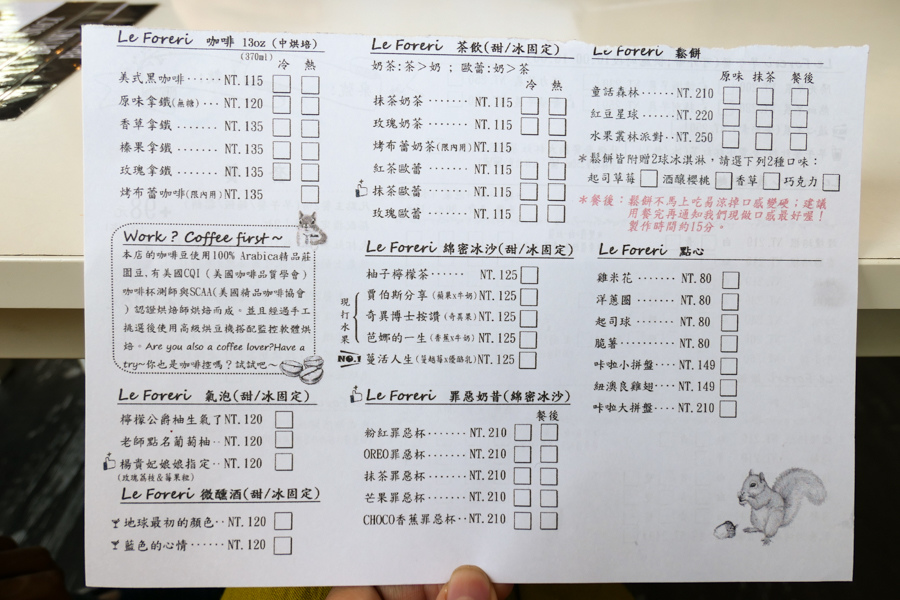 Le Foreri 咖啡 13oz (中烘培)
(370ml) 冷 熱
美式黑咖啡······NT.115
原味拿鐵(無糖)···NT.120
香草拿鐵·······NT.135
榛果拿鐵·······NT.135
玫瑰拿鐵·······NT.135
烤布蕾咖啡(限內用)NT.135
Work ? Coffee first~
本店的咖啡豆使用100% Arabica精品莊
園豆,有美國CQI (美國咖啡品質學會)
咖啡杯測師與SCAA(美國精品咖啡協會
) 認證烘焙師烘焙而成。並且經過手工
挑選後使用高級烘豆機搭配監控軟體烘
焙。Are you also a coffee lover?Have a
try~你也是咖啡控嗎?試試吧~
Le Foreri 氣泡(甜/冰固定)
檸檬公爵柚生氣了NT.120
老師點名葡萄柚··NT.120
楊貴妃娘娘指定··NT.120
(玫瑰荔枝&莓果粒)
Le Foreri 微醺酒(甜/冰固定)
地球最初的顏色··NT.120
藍色的心情······NT.120
Le Foreri 茶飲(甜/冰固定)
奶茶:茶>奶 ; 歐蕾:奶>茶
冷 熱
抹茶奶茶·······NT.115
玫瑰奶茶·······NT.115
烤布蕾奶茶(限內用)NT.115
紅茶歐蕾·······NT.115
抹茶歐蕾·······NT.115
玫瑰歐蕾·······NT.115
Le Foreri 綿密冰沙(甜/冰固定)
柚子檸檬茶······NT.125
現打水果
賈伯斯分享(蘋果x牛奶)NT.125
奇異博士按讚(奇異果)NT.125
芭娜的一生(香蕉x牛奶)NT.125
NO.1 蔓活人生(蔓越莓x優酪乳)NT.125
Le Foreri 罪惡奶昔(綿密冰沙)
餐後
粉紅罪惡杯·······NT.210
OREO罪惡杯·······NT.210
抹茶罪惡杯·······NT.210
芒果罪惡杯·······NT.210
CHOCO香蕉罪惡杯··NT.210
Le Foreri 鬆餅
原味 抹茶 餐後
童話森林······NT.210
紅豆星球······NT.220
水果叢林派對··NT.250
*鬆餅皆附贈2球冰淇淋,請選下列2種口味:
起司草莓 酒釀櫻桃 香草 巧克力
*餐後:鬆餅不馬上吃易涼掉口感變硬;建議
用餐完再通知我們現做口感最好喔!
製作時間約15分。
Le Foreri 點心
雞米花·······NT.80
洋蔥圈·······NT.80
起司球·······NT.80
脆薯·········NT.80
咔啦小拼盤····NT.149
紐澳良雞翅····NT.149
咔啦大拼盤····NT.210